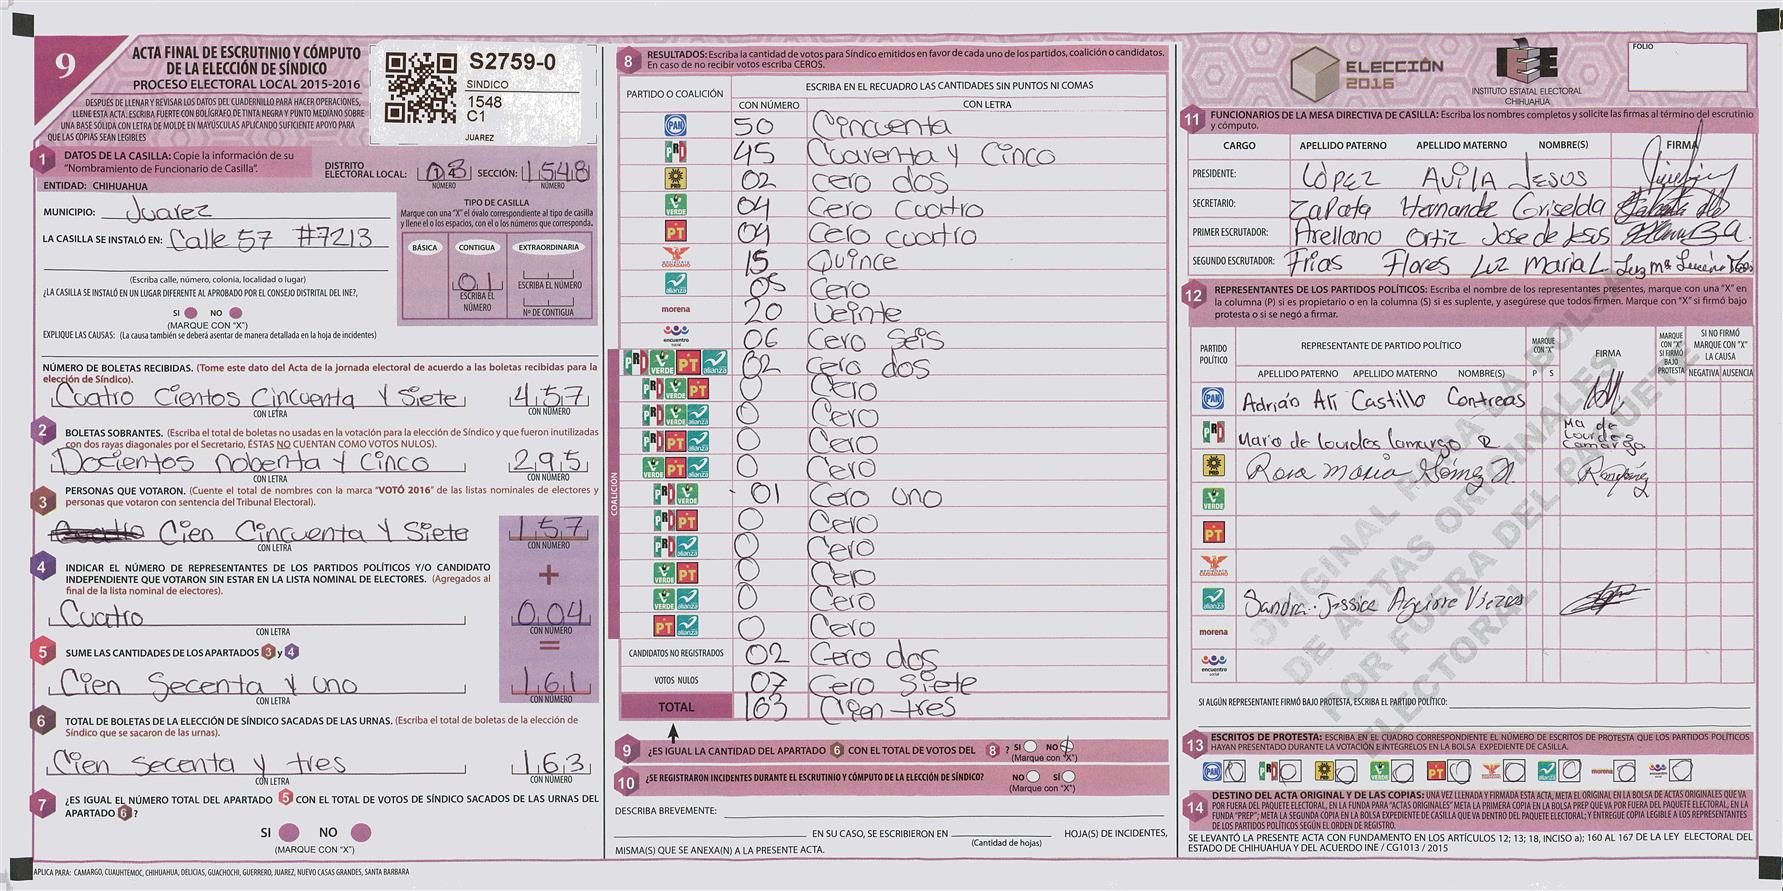 9
ACTA FINAL DE ESCRUTINIO Y CÓMPUTO
DE LA ELECCIÓN DE SÍNDICO
PROCESO ELECTORAL LOCAL 2015-2016
DESPUÉS DE LLENAR Y REVISAR LOS DATOS DEL CUADERNILLO PARA HACER OPERACIONES,
LLENE ESTA ACTA. ESCRIBA FUERTE CON BOLÍGRAFO DE TINTA NEGRA Y PUNTO MEDIANO SOBRE
UNA BASE SÓLIDA CON LETRA DE MOLDE EN MAYÚSCULAS APLICANDO SUFICIENTE APOYO PARA
QUE LAS COPIAS SEAN LEGIBLES
S2759-0
SINDICO
1548
C1
JUAREZ
1 DATOS DE LA CASILLA: Copie la información de su
"Nombramiento de Funcionario de Casilla".
DISTRITO
ELECTORAL LOCAL: 03 SECCIÓN: 1548
NÚMERO NÚMERO
ENTIDAD: CHIHUAHUA
MUNICIPIO: Juarez
LA CASILLA SE INSTALÓ EN: Calle 57 #7213
(Escriba calle, número, colonia, localidad o lugar)
¿LA CASILLA SE INSTALÓ EN UN LUGAR DIFERENTE AL APROBADO POR EL CONSEJO DISTRITAL DEL INE?,
SI NO
(MARQUE CON "X")
EXPLIQUE LAS CAUSAS: (La causa también se deberá asentar de manera detallada en la hoja de incidentes)
TIPO DE CASILLA
Marque con una "X" el óvalo correspondiente al tipo de casilla
y llene el o los espacios, con el o los números que corresponda.
BÁSICA CONTIGUA EXTRAORDINARIA
01
ESCRIBA EL NÚMERO ESCRIBA EL NÚMERO
Nº DE CONTIGUA
NÚMERO DE BOLETAS RECIBIDAS. (Tome este dato del Acta de la jornada electoral de acuerdo a las boletas recibidas para la
elección de Síndico).
Cuatro Cientos Cincuenta Y Siete 457
CON LETRA CON NÚMERO
2 BOLETAS SOBRANTES. (Escriba el total de boletas no usadas en la votación para la elección de Síndico y que fueron inutilizadas
con dos rayas diagonales por el Secretario, ÉSTAS NO CUENTAN COMO VOTOS NULOS).
Docientos nobenta y Cinco 295
CON LETRA CON NÚMERO
3 PERSONAS QUE VOTARON. (Cuente el total de nombres con la marca "VOTÓ 2016" de las listas nominales de electores y
personas que votaron con sentencia del Tribunal Electoral).
Cien Cincuenta Y Siete 157
CON LETRA CON NÚMERO
+
4 INDICAR EL NÚMERO DE REPRESENTANTES DE LOS PARTIDOS POLÍTICOS Y/O CANDIDATO
INDEPENDIENTE QUE VOTARON SIN ESTAR EN LA LISTA NOMINAL DE ELECTORES. (Agregados al
final de la lista nominal de electores).
Cuatro 004
CON LETRA CON NÚMERO
=
5 SUME LAS CANTIDADES DE LOS APARTADOS 3 y 4
Cien Secenta Y uno 161
CON LETRA CON NÚMERO
6 TOTAL DE BOLETAS DE LA ELECCIÓN DE SÍNDICO SACADAS DE LAS URNAS. (Escriba el total de boletas de la elección de
Síndico que se sacaron de las urnas).
Cien secenta y tres 163
CON LETRA CON NÚMERO
7 ¿ES IGUAL EL NÚMERO TOTAL DEL APARTADO 5 CON EL TOTAL DE VOTOS DE SÍNDICO SACADOS DE LAS URNAS DEL
APARTADO 6?
SI NO
(MARQUE CON "X")
APLICA PARA: CAMARGO, CUAUHTEMOC, CHIHUAHUA, DELICIAS, GUACHOCHI, GUERRERO, JUAREZ, NUEVO CASAS GRANDES, SANTA BARBARA
8 RESULTADOS: Escriba la cantidad de votos para Síndico emitidos en favor de cada uno de los partidos, coalición o candidatos.
En caso de no recibir votos escriba CEROS.
PARTIDO O COALICIÓN
ESCRIBA EN EL RECUADRO LAS CANTIDADES SIN PUNTOS NI COMAS
CON NÚMERO CON LETRA
PAN 50 Cincuenta
PRI 45 Cuarenta y Cinco
PRD 02 Cero dos
VERDE 04 Cero Cuatro
PT 04 Cero cuatro
MOVIMIENTO CIUDADANO 15 Quince
alianza Cero
morena 20 Veinte
encuentro social 06 Cero Seis
COALICIÓN
PRI VERDE PT alianza 02 Cero dos
PRI VERDE PT 0 Cero
PRI VERDE alianza 0 Cero
PRI PT alianza 0 Cero
VERDE PT alianza 0 Cero
PRI VERDE 01 Cero uno
PRI PT 0 Cero
PRI alianza 0 Cero
VERDE PT 0 Cero
VERDE alianza 0 Cero
PT alianza 0 Cero
CANDIDATOS NO REGISTRADOS 02 Cero dos
VOTOS NULOS 07 Cero Siete
TOTAL 163 Cien tres
9 ¿ES IGUAL LA CANTIDAD DEL APARTADO 6 CON EL TOTAL DE VOTOS DEL 8 ? SI NO
(Marque con "X")
10 ¿SE REGISTRARON INCIDENTES DURANTE EL ESCRUTINIO Y CÓMPUTO DE LA ELECCIÓN DE SÍNDICO? NO SÍ
(Marque con "X")
DESCRIBA BREVEMENTE:
EN SU CASO, SE ESCRIBIERON EN HOJA(S) DE INCIDENTES,
(Cantidad de hojas)
MISMA(S) QUE SE ANEXA(N) A LA PRESENTE ACTA.
ELECCIÓN
2016
IEE
INSTITUTO ESTATAL ELECTORAL
CHIHUAHUA
FOLIO
11 FUNCIONARIOS DE LA MESA DIRECTIVA DE CASILLA: Escriba los nombres completos y solicite las firmas al término del escrutinio
y cómputo.
CARGO APELLIDO PATERNO APELLIDO MATERNO NOMBRE(S) FIRMA
PRESIDENTE: LÓPEZ AVILA JESUS
SECRETARIO: Zapata Hernandez Griselda
PRIMER ESCRUTADOR: Arellano Ortiz Jose de Jesus
SEGUNDO ESCRUTADOR: Frias Flores Luz Maria L.
12 REPRESENTANTES DE LOS PARTIDOS POLÍTICOS: Escriba el nombre de los representantes presentes, marque con una "X" en
la columna (P) si es propietario o en la columna (S) si es suplente, y asegúrese que todos firmen. Marque con "X" si firmó bajo
protesta o si se negó a firmar.
PARTIDO POLÍTICO
REPRESENTANTE DE PARTIDO POLÍTICO
APELLIDO PATERNO APELLIDO MATERNO NOMBRE(S)
MARQUE CON "X"
P S
FIRMA
MARQUE CON "X" SI FIRMÓ BAJO PROTESTA
SI NO FIRMÓ MARQUE CON "X" LA CAUSA
NEGATIVA AUSENCIA
PAN Adrián Ali Castillo Contreas
PRI Maria de lourdes Camargo R Ma de Lourdes Camargo
PRD Rosa Maria
VERDE
PT
MOVIMIENTO CIUDADANO
alianza Sandra Jessica Aguirre
morena
encuentro social
ORIGINAL PARA LA BOLSA
DE ACTAS ORIGINALES
POR FUERA DEL PAQUETE
ELECTORAL
SI ALGÚN REPRESENTANTE FIRMÓ BAJO PROTESTA, ESCRIBA EL PARTIDO POLÍTICO:
13 ESCRITOS DE PROTESTA: ESCRIBA EN EL CUADRO CORRESPONDIENTE EL NÚMERO DE ESCRITOS DE PROTESTA QUE LOS PARTIDOS POLÍTICOS
HAYAN PRESENTADO DURANTE LA VOTACIÓN E INTÉGRELOS EN LA BOLSA EXPEDIENTE DE CASILLA.
PAN 0 PRI 0 PRD 0 VERDE 0 PT 0 MOVIMIENTO CIUDADANO 0 alianza 0 morena 0 encuentro social 0
14 DESTINO DEL ACTA ORIGINAL Y DE LAS COPIAS: UNA VEZ LLENADA Y FIRMADA ESTA ACTA, META EL ORIGINAL EN LA BOLSA DE ACTAS ORIGINALES QUE VA
POR FUERA DEL PAQUETE ELECTORAL, EN LA FUNDA PARA "ACTAS ORIGINALES" META LA PRIMERA COPIA EN LA BOLSA PREP QUE VA POR FUERA DEL PAQUETE ELECTORAL, EN LA
FUNDA "PREP"; META LA SEGUNDA COPIA EN LA BOLSA EXPEDIENTE DE CASILLA QUE VA DENTRO DEL PAQUETE ELECTORAL; Y ENTREGUE COPIA LEGIBLE A LOS REPRESENTANTES
DE LOS PARTIDOS POLÍTICOS SEGÚN EL ORDEN DE REGISTRO.
SE LEVANTÓ LA PRESENTE ACTA CON FUNDAMENTO EN LOS ARTÍCULOS 12; 13; 18, INCISO a); 160 AL 167 DE LA LEY ELECTORAL DEL
ESTADO DE CHIHUAHUA Y DEL ACUERDO INE / CG1013 / 2015